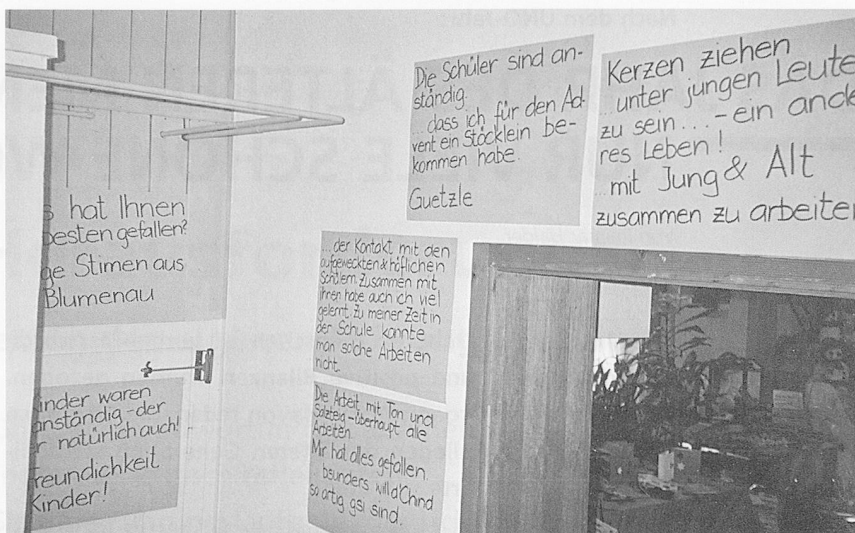 s hat Ihnen
besten gefallen?
ge Stimen aus
Blumenau
inder waren
anständig - der
r natürlich auch! -
Freundichkeit
Kinder!
Die Schüler sind an-
ständig.
...dass ich für den Ad-
vent ein Stöcklein be-
kommen habe.
Guetzle
Kerzen ziehen
...unter jungen Leute
zu sein... - ein ande
res Leben!
...mit Jung & Alt
zusammen zu arbeiten
...der Kontakt mit den
aufgeweckten & höflichen
Schülern. Zusammen mit
ihnen habe auch ich viel
gelernt. Zu meiner Zeit in
der Schule kannte
man solche Arbeiten
nicht.
Die Arbeit mit Ton und
Salzteig - überhaupt alle
Arbeiten.
Mir hat alles gefallen.
bsunders will d'Chind
so artig gsi sind.